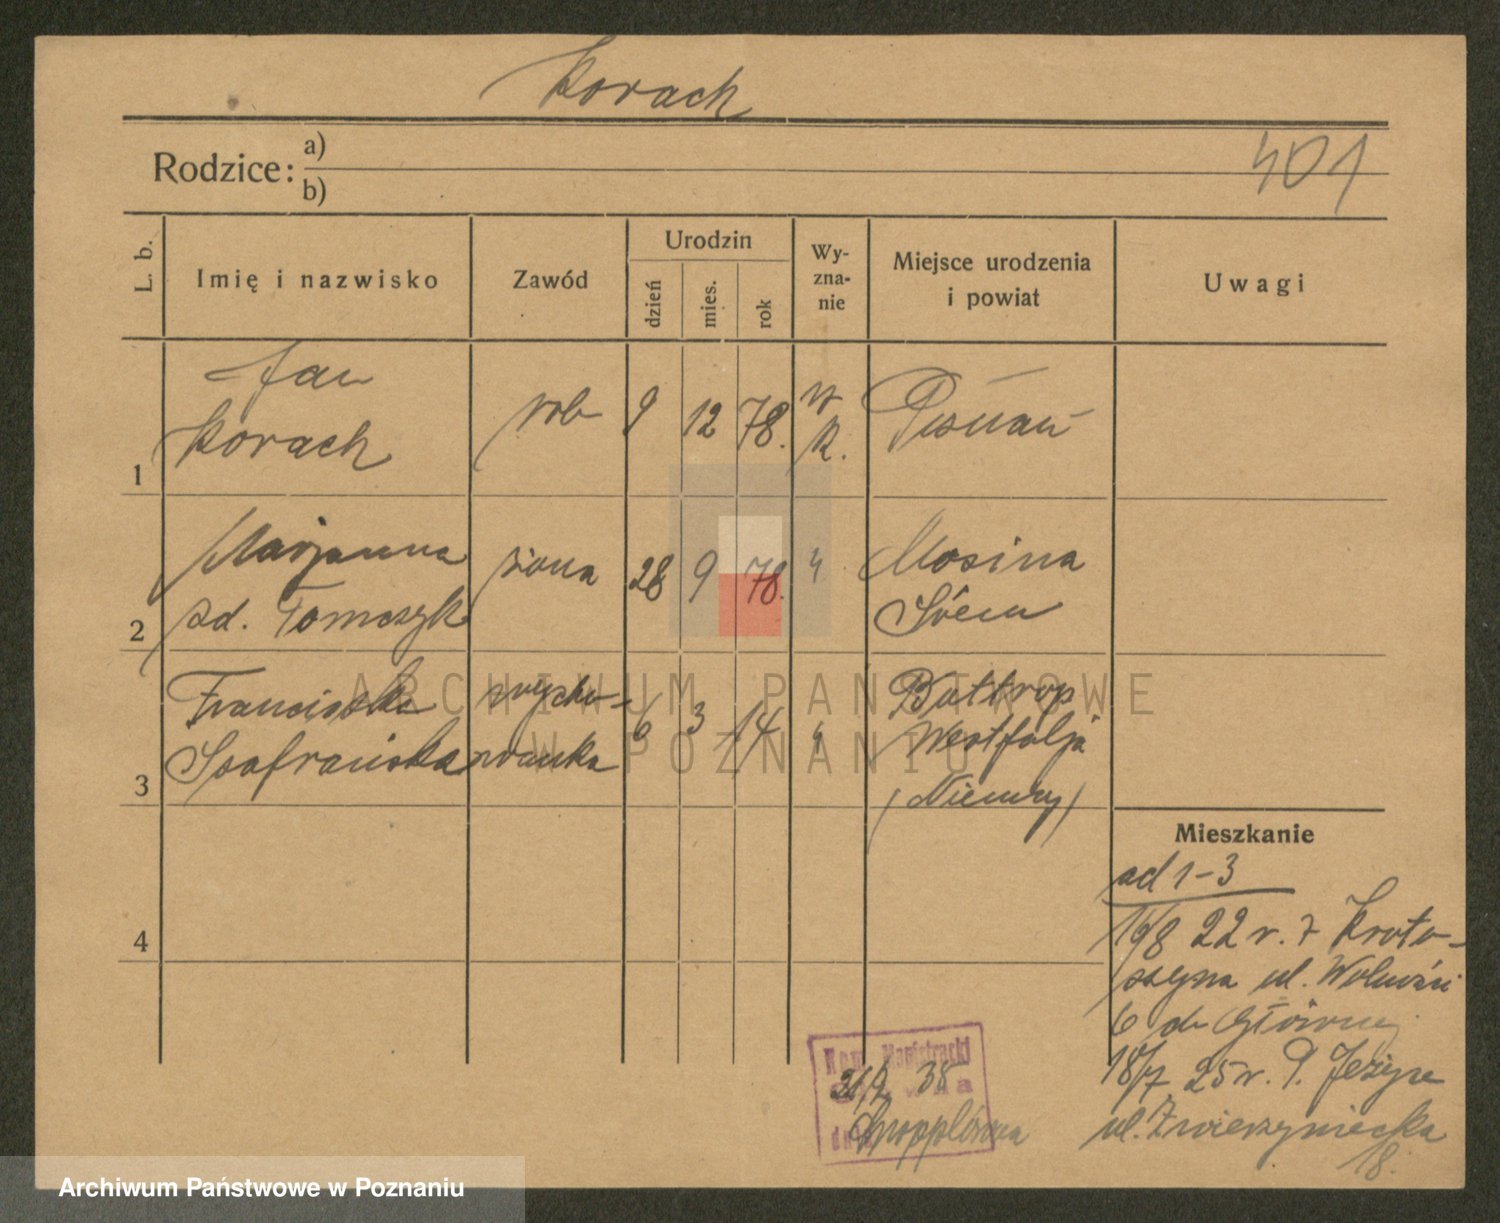 Korach
Rodzice: a)
b)
401
L. b.
Imię i nazwisko
Zawód
Urodzin
dzień
mies.
rok
Wy-
zna-
nie
Miejsce urodzenia
i powiat
Uwagi
1
Jan
Korach
rob
9
12
78.
rz
k.
Poznań
2
Marjanna
zd. Tomczyk
żona
28
9
78.
Mosina
Śrem
3
Franciszka
Szafrańska
wycho-
wanka
6
3
14
Bottrop
Westfalja
(Niemcy)
4
Mieszkanie
ad 1-3
16/8 22 r. z Kroto-
szyna ul. Wolności
6 do Główny
18/7 25 r. P. Jeżyce
ul. Zwierzyniecka
18.
Magistracki
ARCHIWUM PAŃSTWOWE
W POZNANIU
Archiwum Państwowe w Poznaniu